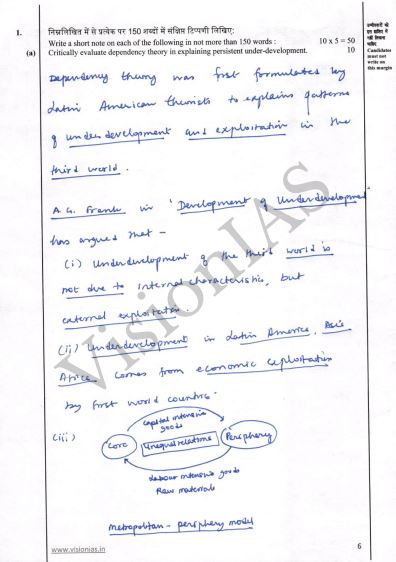 1. निम्नलिखित में से प्रत्येक पर 150 शब्दों में संक्षिप्त टिप्पणी लिखिए:
Write a short note on each of the following in not more than 150 words : 10 x 5 = 50
(a) Critically evaluate dependency theory in explaining persistent under-development. 10
उम्मीदवारों को
इस हाशिए में
नहीं लिखना
चाहिए
Candidates
must not
write on
this margin
Dependency theory was first formulated by
Latin American theorists to explains patterns
of underdevelopment and exploitation in the
third world.
A.G. Frank in 'Development of Underdevelopment
has argued that -
(i) Underdevelopment of the third world is
not due to internal characteristic, but
external exploitation.
(ii) Underdevelopment in Latin America, Asia
Africa comes from economic exploitation
by first world countries.
(iii)
Capital intensive
goods
Core Unequal relations Periphery
Labour intensive goods
Raw materials
Metropolitan - periphery model
VisionIAS
www.visionias.in
6